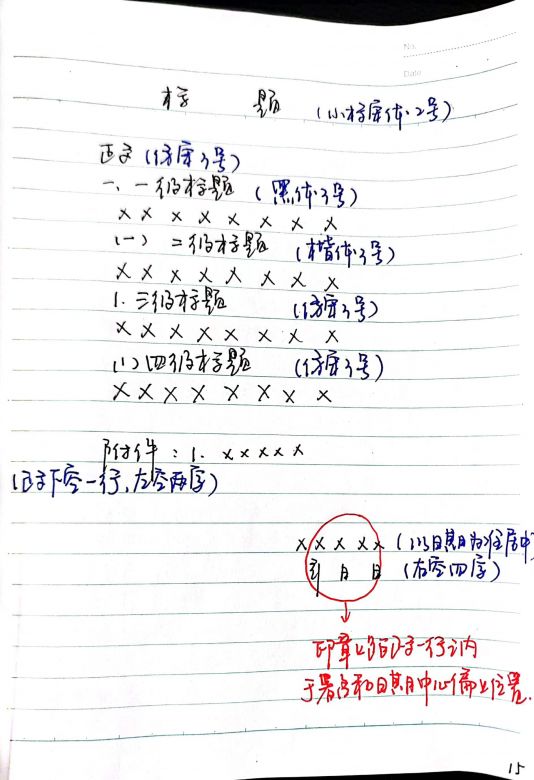 No.
Date
标 题 (小标宋体·2号)
正文 (仿宋3号)
一、一级标题 (黑体·3号)
× × × × × × × ×
(一) 二级标题 (楷体·3号)
× × × × × × × ×
1. 三级标题 (仿宋3号)
× × × × × × × ×
(1) 四级标题 (仿宋3号)
× × × × × × × ×
附件:1. × × × × ×
(正文下空一行,左空两字)
× × × × × (以日期为准居中)
年 月 日 (右空四字)
印章与正文一行之内
于署名和日期中心偏上位置.
15